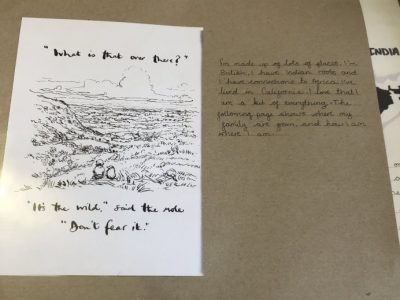 "What is that over there?"
"It's the wild," said the mole
"Don't fear it."
I'm made up of lots of places. I'm
British, I have Indian roots and
I have connections to Africa. I've
lived in California. I love that I
am a bit of everything. The
following page shows where my
family are from, and how I am
where I am.
INDIA